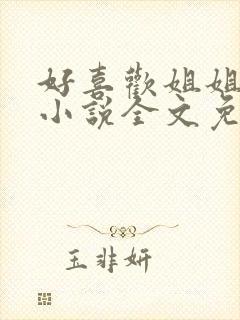 好喜歡姐姐
小說全文免
玉非妍